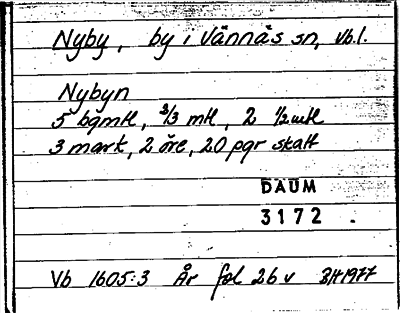 Nyby, by i Vännäs sn, Vb.l.
Nybyn
5 bgmtl, 3/3 mtl, 2 1/2 mtl
3 mark, 2 öre, 20 pgr skatt
DAUM
3172.
Vb 1605:3 År fol 26 v BH 1977